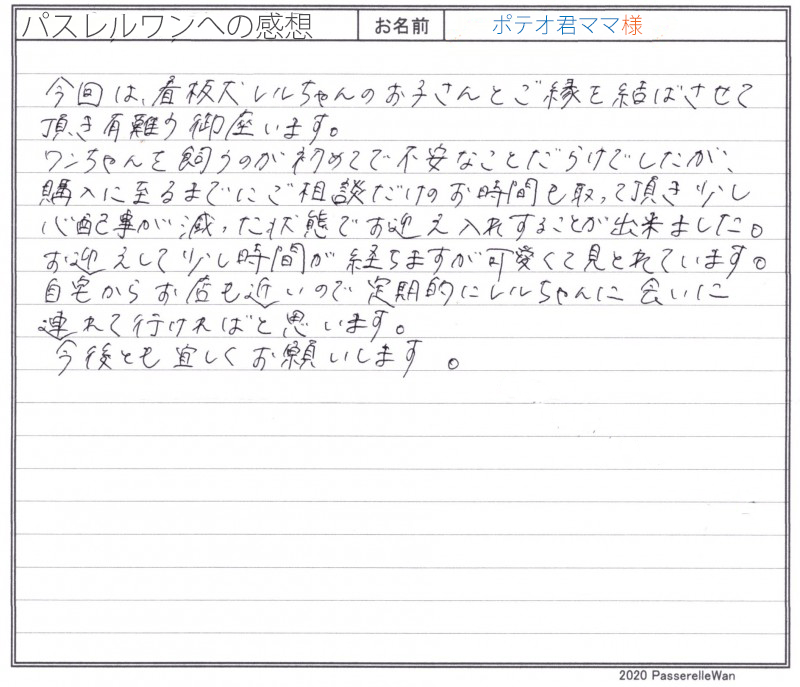 パスレルワンへの感想 お名前 ポテオ君ママ様
今回は、看板犬レルちゃんのお子さんとご縁を結ばさせて
頂き有難う御座います。
ワンちゃんを飼うのが初めてで不安なことだらけでしたが、
購入に至るまでにご相談だけのお時間も取って頂き少し
心配事が減った状態でお迎え入れすることが出来ました。
お迎えして少し時間が経ちますが可愛くて見とれています。
自宅からお店も近いので定期的にレルちゃんに会いに
連れて行ければと思います。
今後とも宜しくお願いします。
2020 PasserelleWan